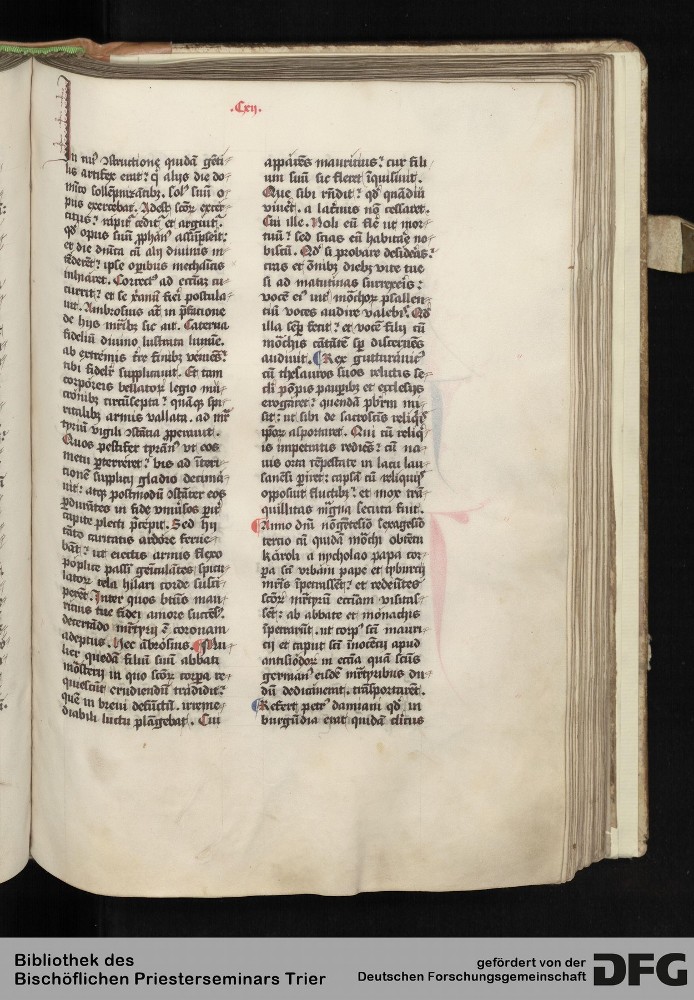 .Cxij.
In cui9 ꝯstructione quidā gēti
lis artifex erat? q̄ alijs die do
mīco sollēpnizātibꝫ. sol9 suū o
pus exercebat. Adest scōr exer
citus? rapit᷑ cedit᷑ et arguit᷑.
qd̓ opus suū ꝓphan9 assūpserit?
et die dn̄ica cū alij diuinis in
sisterēt? ipse opibus mechanicis
inhiaret. Correct9 ad ecc̄iaꝫ cu
currit? et se xp̄ianū fieri postula
uit. Ambrosius aūt in p̄facione
de hijs mr̄ibꝫ sic ait. Caterua
fideliū diuino lustrata lumīe.
ab extremis t̄re finibꝫ veniēs?
tibi fidelr̄ supplicauit. Et tam
corporeis bellatoꝝ legio mu
cronibꝫ circūsepta? quāqꝫ spi
ritalibꝫ armis vallata. ad mr̄
tyriū vigili ꝯstācia ꝓperauit.
Quos pestifer tyrān9 vt eos
metu ꝑterreret? bis ad īteri
tionē supplicij gladio decima
uit? atqꝫ postmodū ꝯstāter eos
ꝑdurātes in fide vniūsos ꝑit᷑
capite plecti p̄cepit. Sed hij
tāto caritatis ardōre ferue
bāt? ut eiectis armis flexo
poplite passi geīculātes spicu
latoꝝ tela hilari corde susci
perēt. Inter quos btūs mau
ricius tue fidei amore succēs9.
decertādo mr̄tyrij ē coronam
adeptus. Hec ābrōsius. ¶Mu
lier quedā filiū suū abbati
mōsterij in quo scōꝝ corꝑa re
quiescūt erudiendū tradidit?
quē in breui defūctū. irreme
diabili luctu plāgebat. Cui
apparēs mauricius? cur fili
um suū sic fleret īquisiuit.
Que sibi rn̄dit? qd̓ quādiu
viuet᷑. a lac̄mis nō cessaret.
Cui ille. Noli eū flē ut mor
tuū? sed scias eū habitāe no
biscū. Qd̓ si probare desideās?
cras et ōnibꝫ diebꝫ vite tue
si ad matutinas surrexeis?
vocē ei9 inꝉ mōchoꝝ psallen
ciū voces audire valebis. Qd̓
illa sēp fecit? et vocē filij cū
mōchis cātātē sꝑ discernēs
audiuit. ¶Rex gutturānic9
cū thesauros suos relictis se
cl̓i pōpis pauꝑibꝫ et ecclesijs
erogaret? quendā pb̄rm mi
sit? ut sibi de sacroscīs reliqijs
ip̄oꝝ asportaret. Qui cū reliq̓
is impetratis rediēs? cū na
uis orta tēpestate in lacu lau
sanēsi ꝑiret? capsā cū reliquijs
opposuit fluctibꝫ? et mox trā
quillitas magna secuta fuit.
¶Anno dn̄i nōgētesīo sexagesīo
tercio cū quidā mōchi obtētu
karoli a nycholao papa cor
ꝑa scī vrbāni pape et tyburcij
mr̄is īpetrassēt? et redeūtes
scōꝝ mr̄tyrū ecc̄iam visitas
sēt? ab abbate et monachis
īpetrarūt. ut corp9 scī mauri
cij et caput scī īnocētij apud
antisiōdoꝝ in ecc̄ia quā scūs
german9 eisdē mr̄tyribus du
dū dedicauerat. trāsportarēt.
¶Refert petr9 damiani qd̓ in
burgūdia erat quidā cl̄icus
Bibliothek des
Bischöflichen Priesterseminars Trier
gefördert von der
Deutschen Forschungsgemeinschaft
DFG